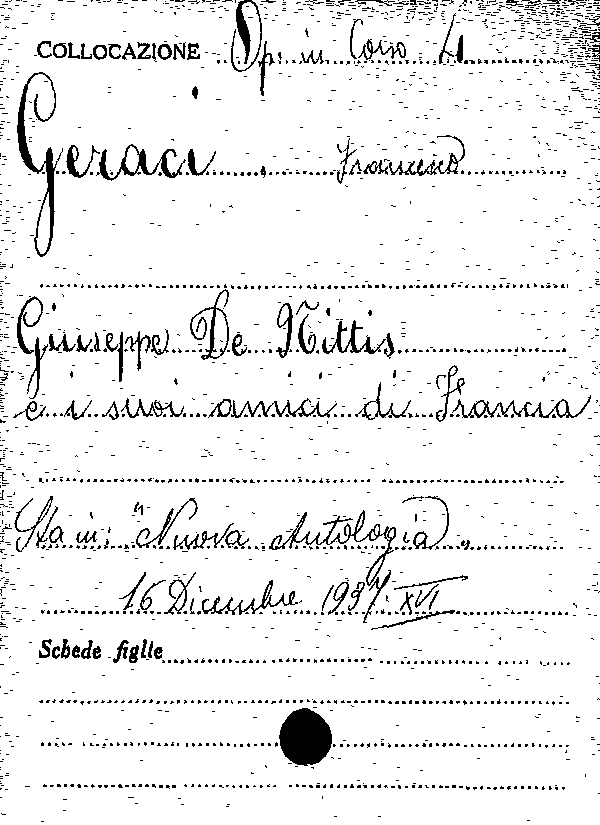 COLLOCAZIONE Op. in Corso 4
Geraci, Francesco
Giuseppe De Nittis
e i suoi amici di Francia
Sta in: "Nuova Antologia"
16 Dicembre 1937. XVI
Schede figlie